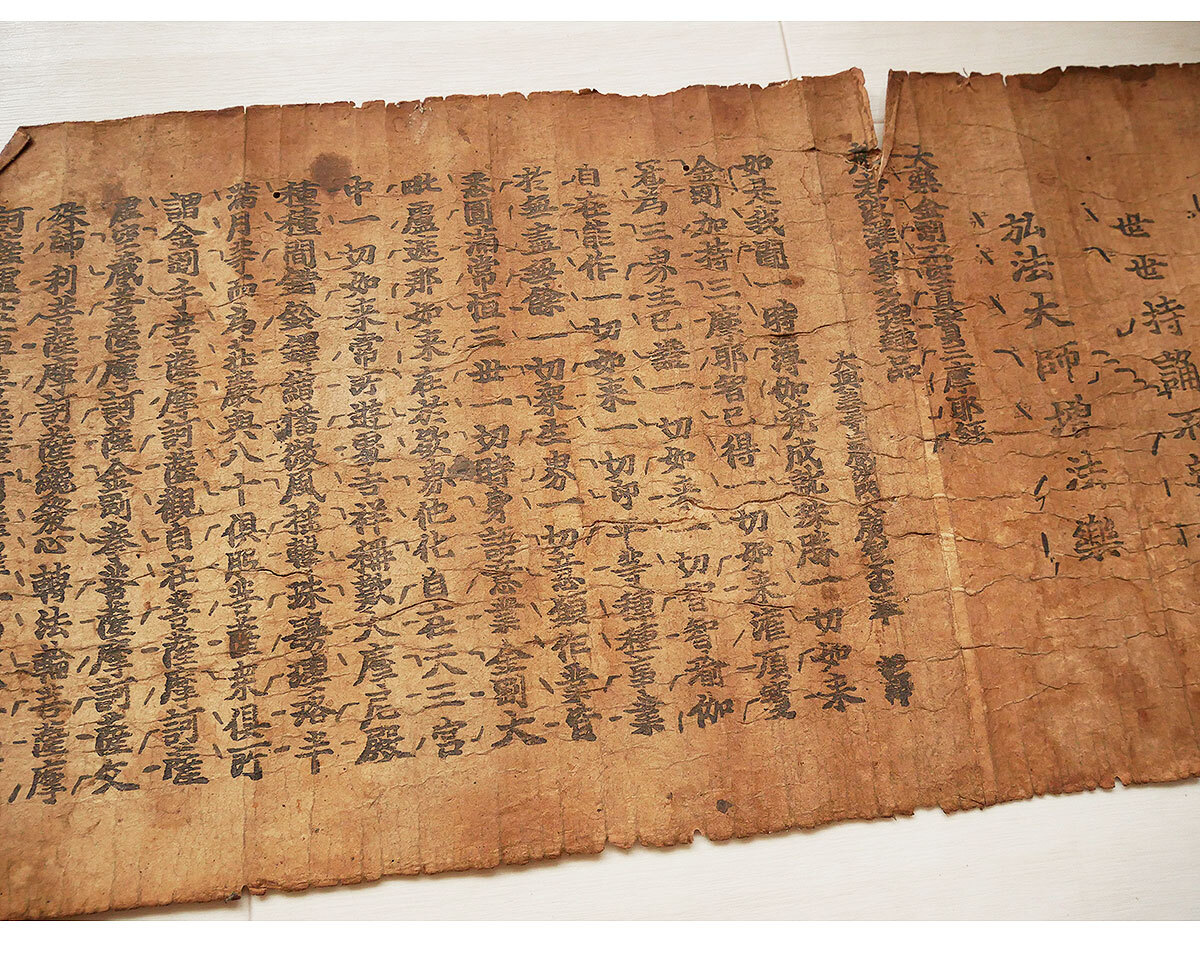 世世持誦不
弘法大師増法樂
大樂金剛不空真實三麼耶経
般若波羅蜜多理趣品
大興善寺三藏沙門大廣智不空奉 詔譯
如是我聞一時薄伽梵成就殊勝一切如来
金剛加持三摩耶智已得一切如来灌頂寳
冠為三界主已證一切如来一切智智瑜伽
自在能作一切如来一切印平等種種事業
於無盡無餘一切衆生界一切意願作業皆
悉圓満常恒三世一切時身語意業金剛大
毗盧遮那如来在於欲界他化自在天王宮
中一切如来常所遊處吉祥稱歎大摩尼殿
種種間錯鈴鐸繒幡微風揺撃珠鬘瓔珞半
満月等而為荘嚴與八十俱胝菩薩衆俱所
謂金剛手菩薩摩訶薩觀自在菩薩摩訶薩
虚空藏菩薩摩訶薩金剛拳菩薩摩訶薩文
殊師利菩薩摩訶薩纔發心轉法輪菩薩摩